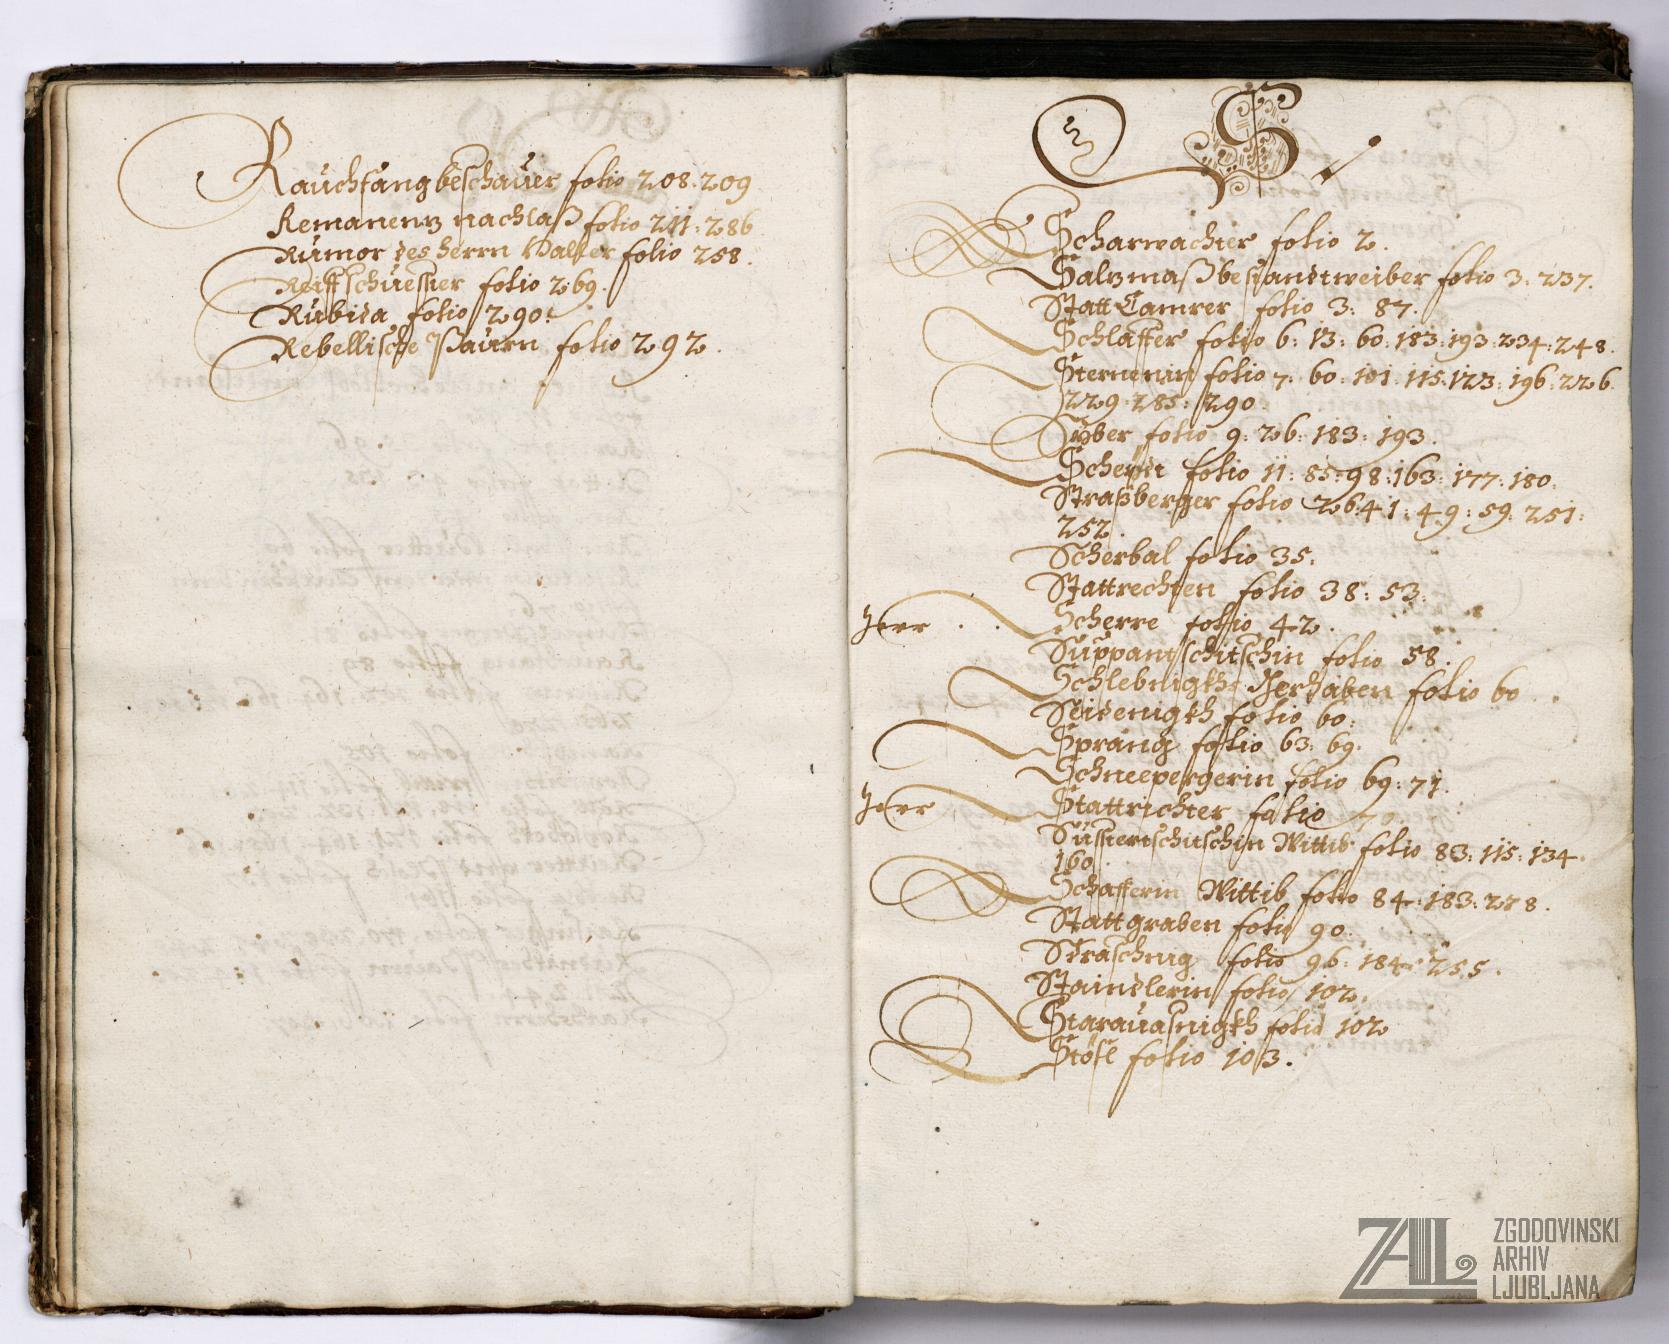 Rauchfangbeschauer folio 208. 209
Remanenz nachlaß folio 211: 286
Rumor des herrn Haller folio 258.
Reiffschuesster folio 269.
Rubida folio 290.
Rebellische Paurn folio 292.
S
Scharwachter folio 2.
Salzmaßbestandtweiber folio 3: 237.
Statt Camrer folio 3: 87.
Schlaffer folio 6: 13: 60: 183: 193: 234: 248.
folio 7: 60: 101: 115: 123: 196: 226
229: 285: 290.
folio 9: 26: 183: 193.
folio 11: 85: 98: 163: 177: 180.
Straßberger folio 26: 41: 49: 59: 251:
252.
Scherbal folio 35.
Stattrechten folio 38: 53.
Herr Scherre folio 42.
Suppantschitschin folio 58.
Gerhaben folio 60.
Seidenigkh folio 60.
Sprang folio 63: 69.
Schneepergerin folio 69: 71.
Herr Stattrichter folio 70.
Wittib folio 83: 115: 134.
160.
Schafferin Wittib folio 84: 183: 278.
Stattgraben folio 90.
Straschnig folio 96: 184: 255.
Staindlerin folio 102.
Starauasnigkh folio 102
Stösl folio 103.
ZAL ZGODOVINSKI
ARHIV
LJUBLJANA